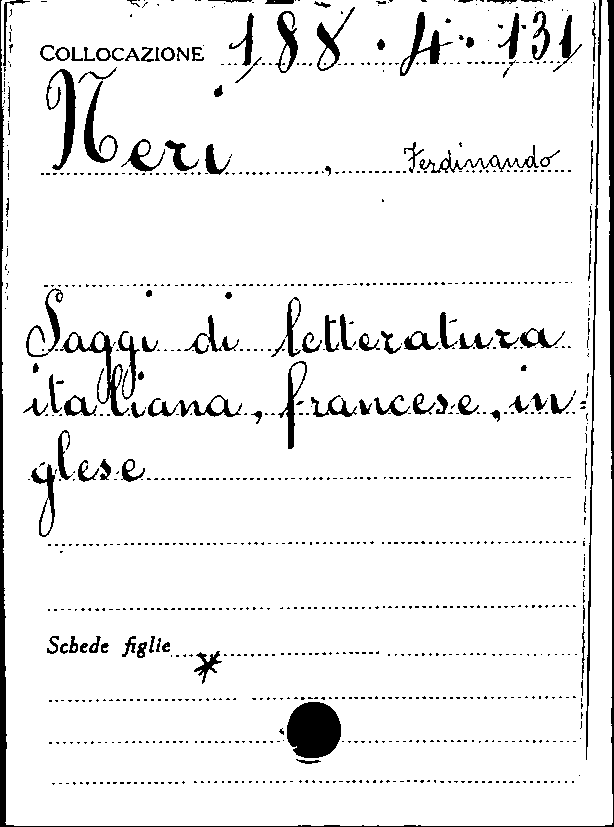 COLLOCAZIONE 188.4.131
Neri, Ferdinando
Saggi di letteratura
italiana, francese, in=
glese
Schede figlie *